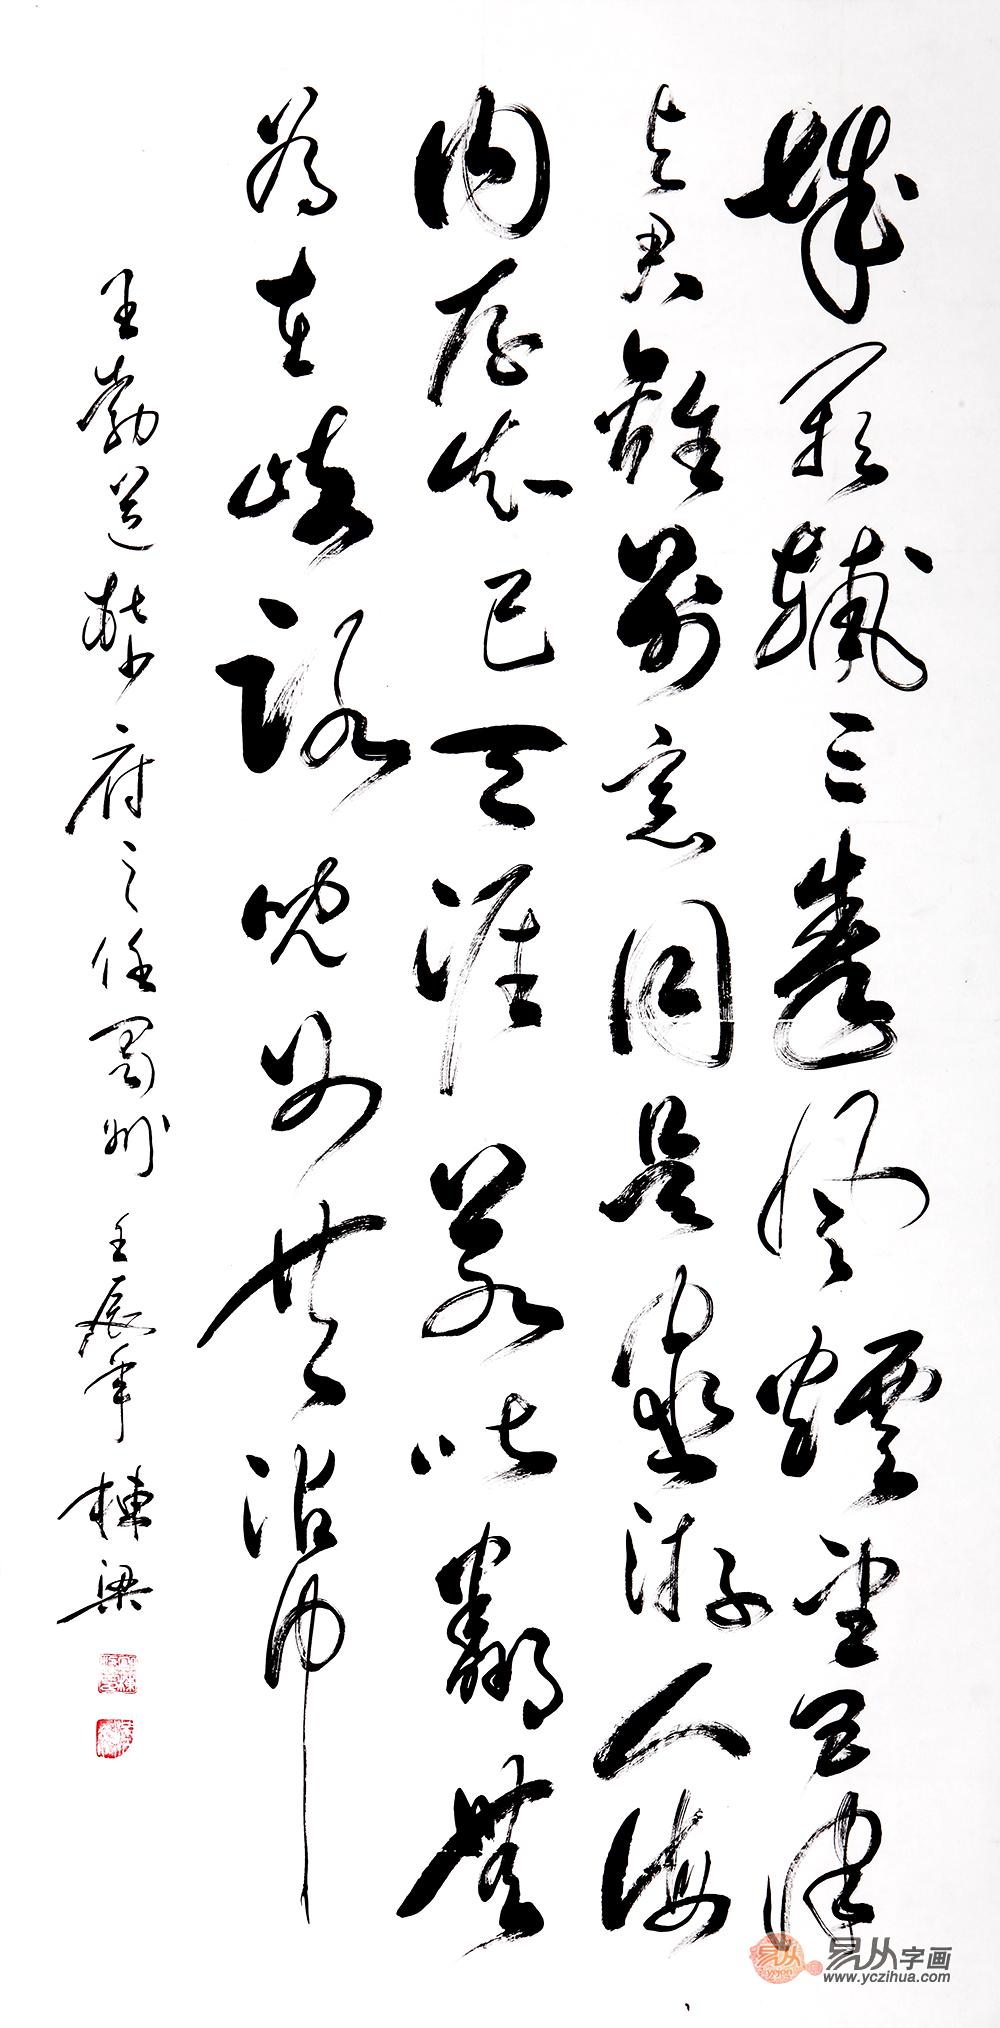 城闕輔三秦風煙望五津
与君離別意同是宦游人海
内存知己天涯若比鄰無
為在岐路兒女共沾巾
王勃送杜少府之任蜀州 壬辰年 棟梁
易从字画
www.yczihua.com